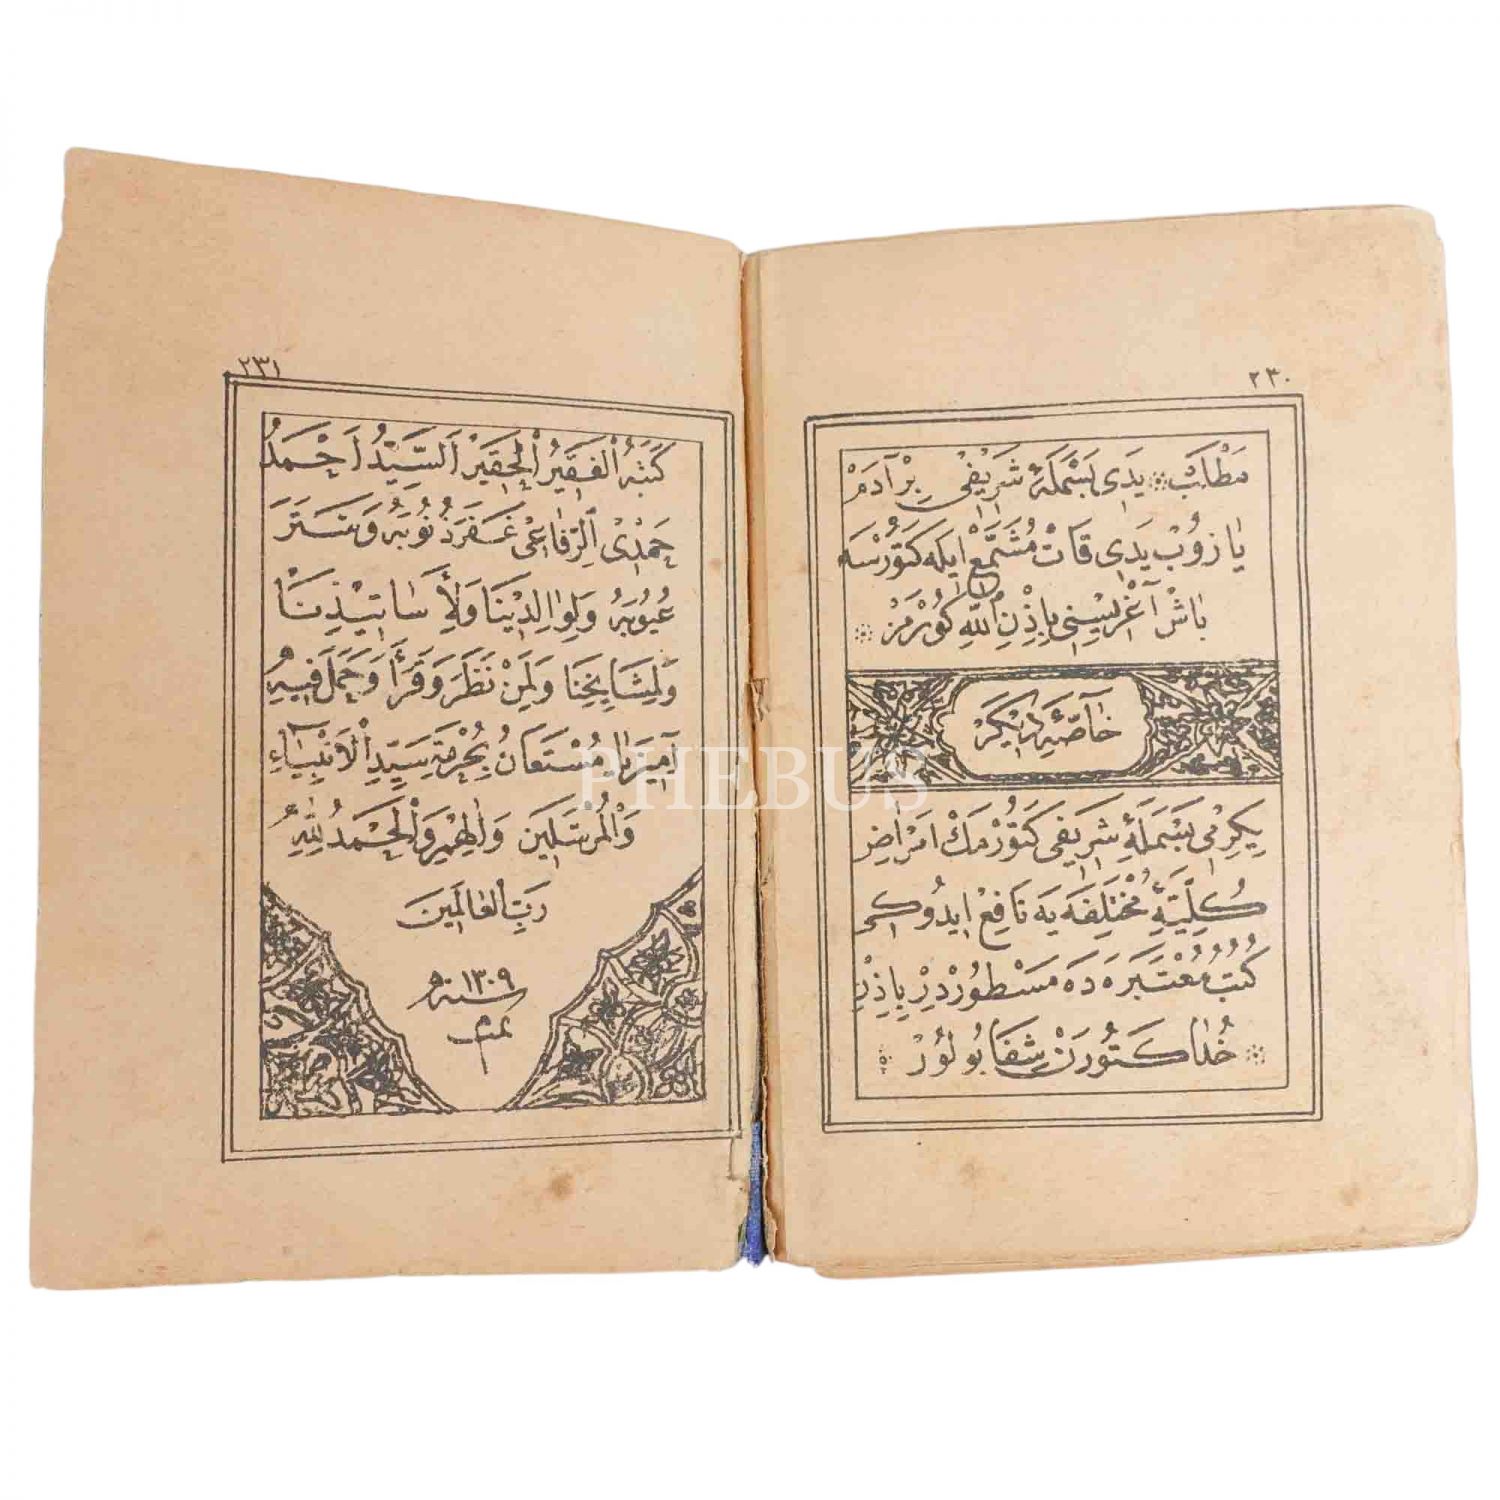 ٢٣٠
مَطْلَبْ يَدِى بَسْمَلَۀِ شَرِيفِى بِرْ آدَمْ
يَازُوبْ يَدِى قَاتْ مُشَمَّعْ ايله كَتُورْسَه
بَاشْ آغْرِيسِنِى بِاِذْنِ اللّٰهِ كُورْمَزْ
خَاصَّۀِ دِيكَرْ
يِكِرْمِى بَسْمَلَۀِ شَرِيفِى كَتُورْمَكْ اَمْرَاضِ
كُلِّيَّۀِ مُخْتَلِفَه يَه نَافِعْ ايدُوكى
كُتُبِ مُعْتَبَرَه دَه مَسْطُورْدِرْ بِاِذْنِ
خُدَا كَتُورَنْ شِفَا بُولُورْ
٢٣١
كَتَبَهُ الْفَقِيرُ الْحَقِيرْ اَلسَّيِّدُ اَحْمَدُ
حَمْدِىْ الرِّفَاعِى غَفَرَ ذُنُوبَهُ وَسَتَرَ
عُيُوبَهُ وَلِوَالِدِينَا وَلِأَسَاتِيذِنَا
وَلِمَشَايِخِنَا وَلِمَنْ نَظَرَ وَقَرَأَ وَحَمَلَ فِيهِ
آمِينَ يَا مُسْتَعَانُ بِحُرْمَةِ سَيِّدِ الْاَنْبِيَاءِ
وَالْمُرْسَلِينَ وَاٰلِهِمْ وَالْحَمْدُ لِلّٰهِ
رَبِّ الْعَالَمِينَ
سنه ١٣٠٩
PHEBUS